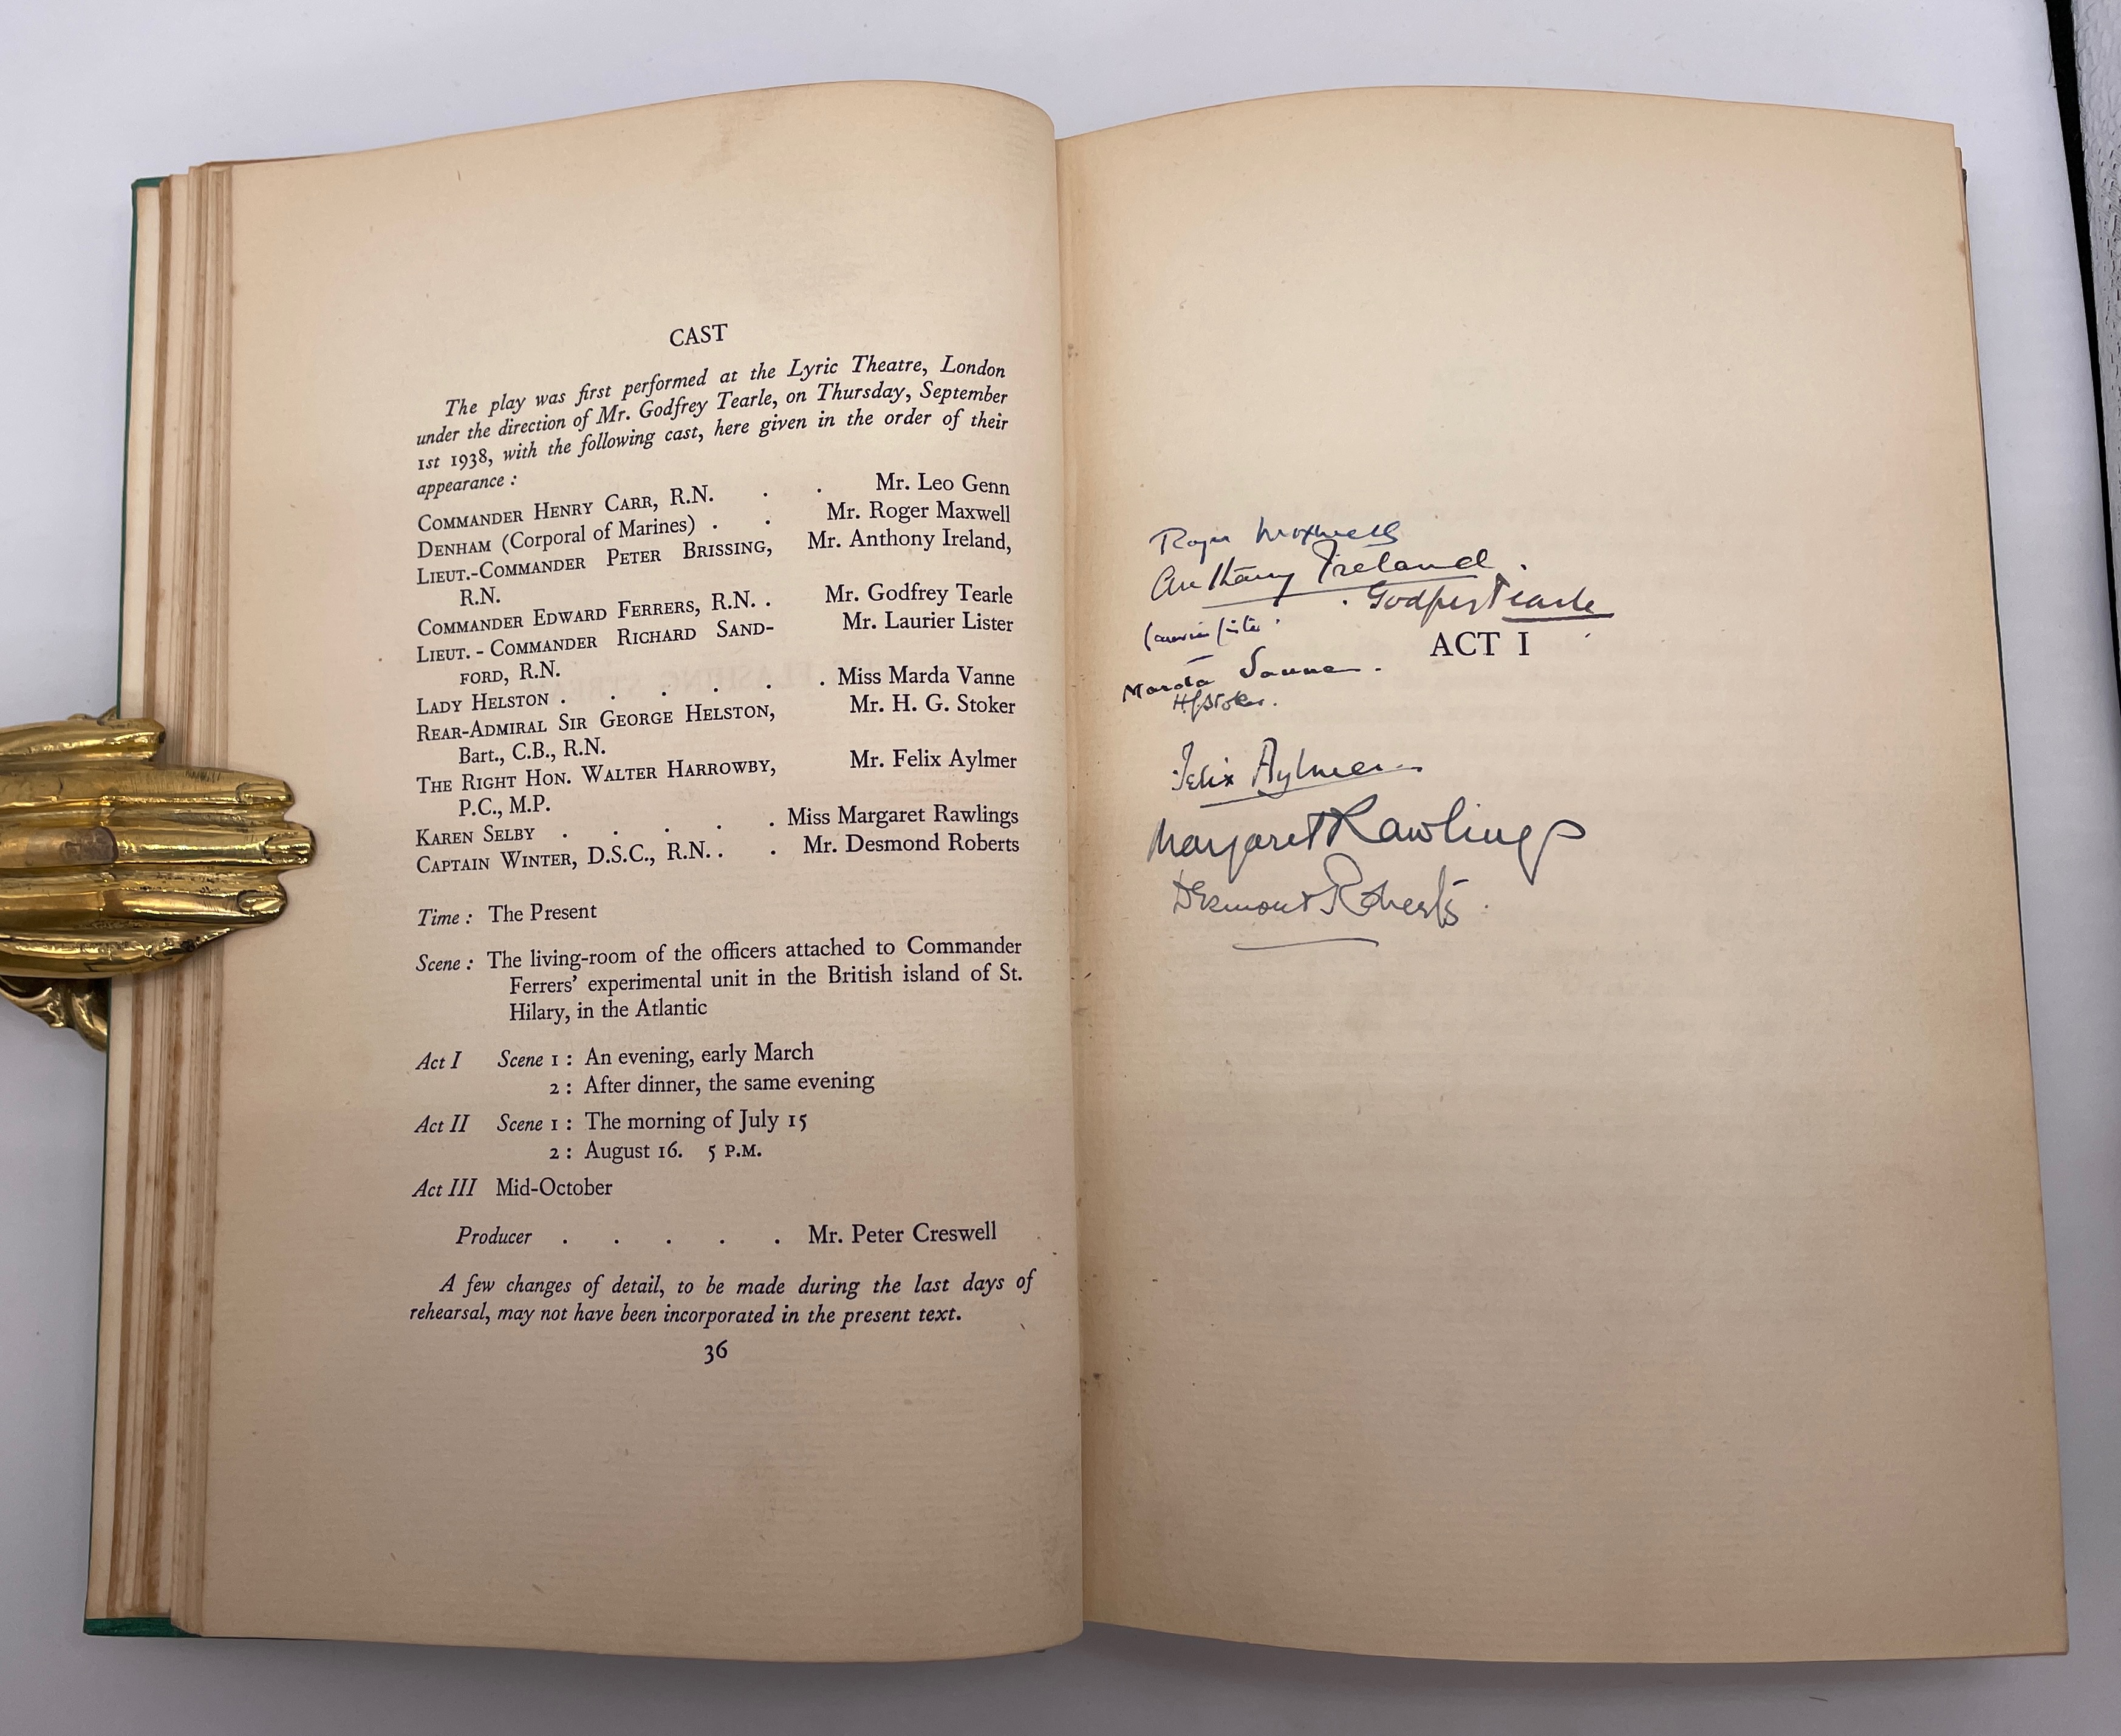 CAST
The play was first performed at the Lyric Theatre, London
under the direction of Mr. Godfrey Tearle, on Thursday, September
1st 1938, with the following cast, here given in the order of their
appearance :
COMMANDER HENRY CARR, R.N. . . Mr. Leo Genn
DENHAM (Corporal of Marines) . . Mr. Roger Maxwell
LIEUT.-COMMANDER PETER BRISSING, Mr. Anthony Ireland,
R.N.
COMMANDER EDWARD FERRERS, R.N. . Mr. Godfrey Tearle
LIEUT. - COMMANDER RICHARD SAND- Mr. Laurier Lister
FORD, R.N.
LADY HELSTON . . . . . . Miss Marda Vanne
REAR-ADMIRAL SIR GEORGE HELSTON, Mr. H. G. Stoker
Bart., C.B., R.N.
THE RIGHT HON. WALTER HARROWBY, Mr. Felix Aylmer
P.C., M.P.
KAREN SELBY . . . . . Miss Margaret Rawlings
CAPTAIN WINTER, D.S.C., R.N. . . Mr. Desmond Roberts
Time : The Present
Scene : The living-room of the officers attached to Commander
Ferrers' experimental unit in the British island of St.
Hilary, in the Atlantic
Act I Scene 1 : An evening, early March
2 : After dinner, the same evening
Act II Scene 1 : The morning of July 15
2 : August 16. 5 P.M.
Act III Mid-October
Producer . . . . . Mr. Peter Creswell
A few changes of detail, to be made during the last days of
rehearsal, may not have been incorporated in the present text.
36
Roger Maxwell
Anthony Ireland.
Godfrey Tearle
Laurier Lister.
ACT I
Marda Vanne.
H G Stoker.
Felix Aylmer
Margaret Rawlings
Desmond Roberts.